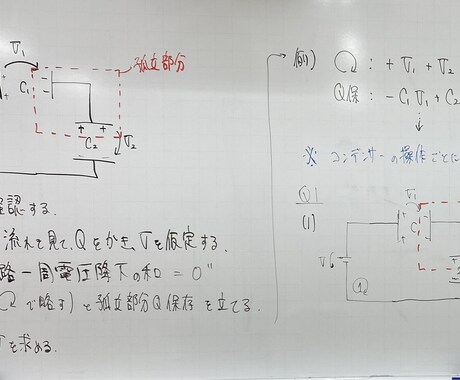 V₁
孤立部分
C₁
C₂
V₂
認する.
流れを見て、Qをかき、Vを仮定する.
路一周電圧降下の和 = 0"
で略す) と 孤立部分Q保存 を立てる.
を求める.
例) ↻ : + V₁ + V₂
Q保 : - C₁ V₁ + C₂
※ コンデンサーの操作ごとに
Q1
(1)
V₁
C₁
V